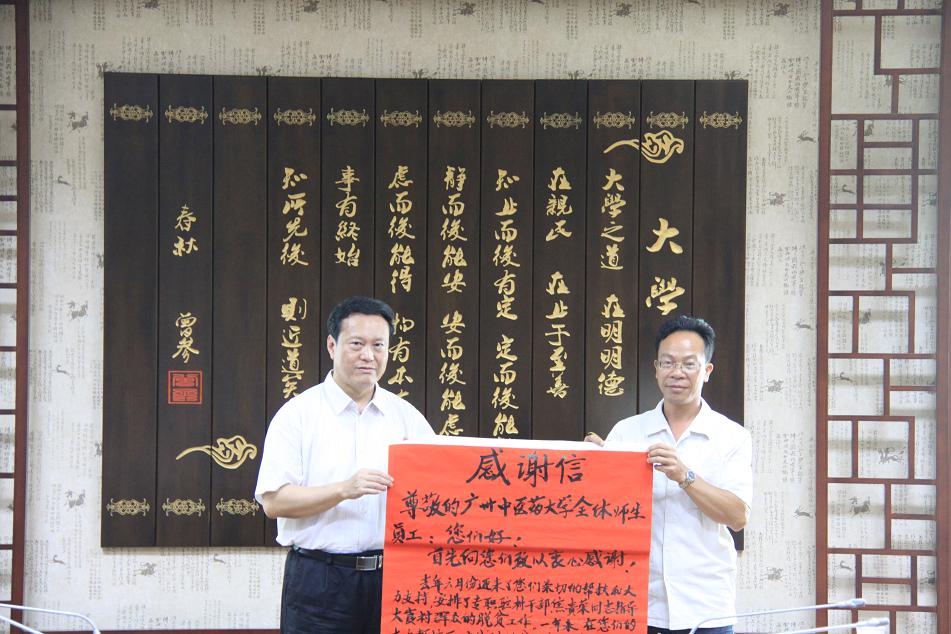 大學
大學之道 在明明德
在親民 在止于至善
知止而後有定 定而後能
靜而後能安 安而後能慮
慮而後能得 物有本
事有終始
知所先後 則近道矣
春秋 曾參
感谢信
尊敬的广州中医药大学全体师生
员工：您们好，
首先向您们致以衷心感谢！
去年六月份迎来了您们亲切的帮扶和人
力支持，安排了专职驻村干部同志指导
村群众的脱贫工作。一年来，在您们的